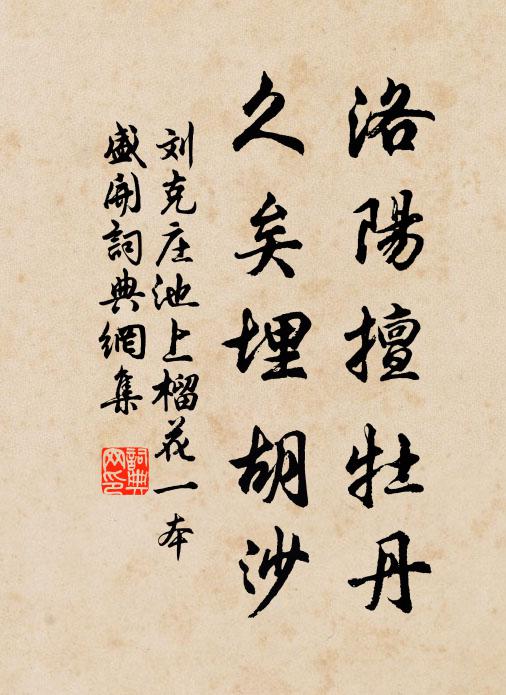 洛陽擅牡丹
久矣埋胡沙
刘克庄池上榴花一本
盛開詞典網集
詞典網印